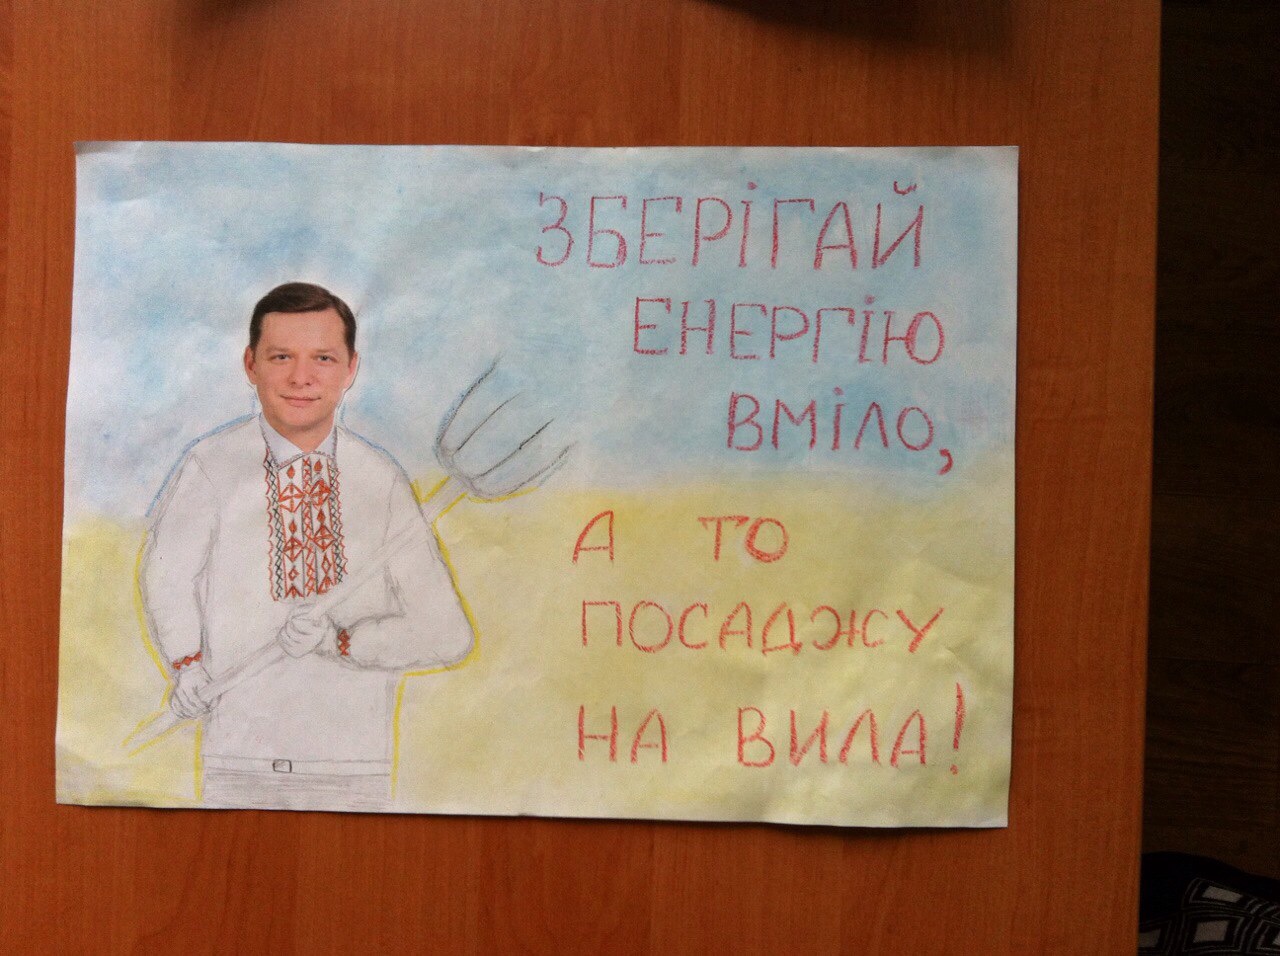 ЗБЕРІГАЙ
ЕНЕРГІЮ
ВМІЛО,
А ТО
ПОСАДЖУ
НА ВИЛА!